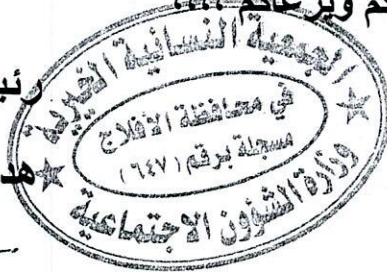 ويرعاكم ،،،،
الجمعية النسائية الخيرية
في محافظة الأفلاج
مسجلة برقم (٦٤٧)
وزارة الشؤون الاجتماعية